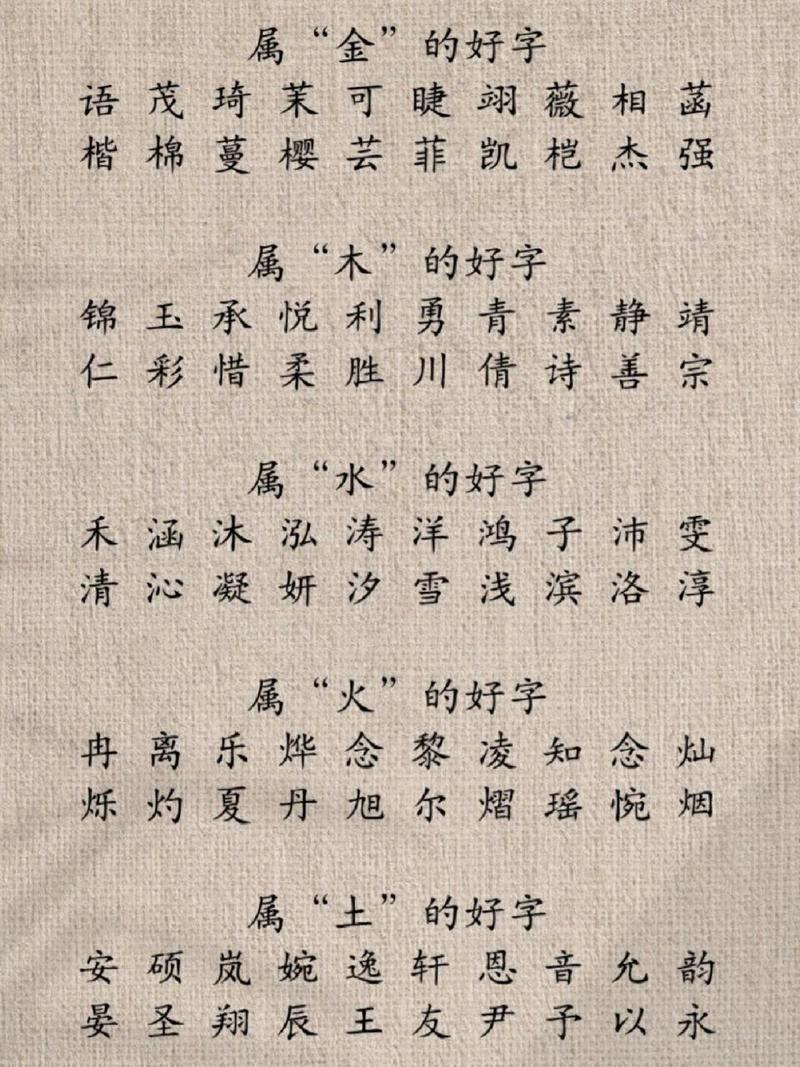 属“金”的好字
语 茂 琦 茉 可 睫 翊 薇 相 菡
楷 棉 蔓 樱 芸 菲 凯 桤 杰 强
属“木”的好字
锦 玉 承 悦 利 勇 青 素 静 靖
仁 彩 惜 柔 胜 川 倩 诗 善 宗
属“水”的好字
禾 涵 沐 泓 涛 洋 鸿 子 沛 雯
清 沁 凝 妍 汐 雪 浅 滨 洛 淳
属“火”的好字
冉 离 乐 烨 念 黎 凌 知 念 灿
烁 灼 夏 丹 旭 尔 熠 瑶 惋 烟
属“土”的好字
安 硕 岚 婉 逸 轩 恩 音 允 韵
晏 圣 翔 辰 王 友 尹 予 以 永